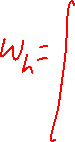 W_h = ∫